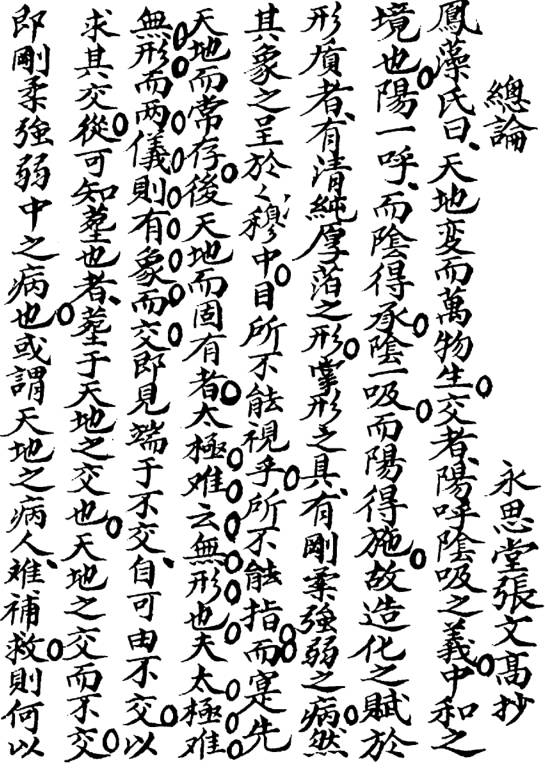 總論
永思堂張文高抄
鳳藻氏曰天地变而萬物生交者陽呼陰吸之義中和之
境也陽一呼而陰得承陰一吸而陽得施故造化之賦於
形質者有清純厚萡之形寓形之具有剛柔強弱之病然
其象之呈於〻穆中目所不能視手所不能指而寔先
天地而常存後天地而固有者太極难云無形也夫太極难
無形而两儀則有象而交即見端于不交自可由不交以
求其交從可知墓也者墓于天地之交也天地之交而不交
即剛柔強弱中之病也或謂天地之病人难補救則何以